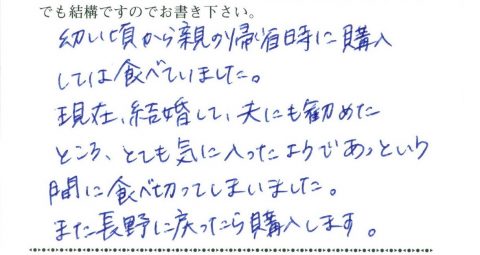 でも結構ですのでお書き下さい。
幼い頃から親の帰省時に購入
しては食べていました。
現在、結婚して、夫にも勧めた
ところ、とても気に入ったようであっという
間に食べ切ってしまいました。
また長野に戻ったら購入します。